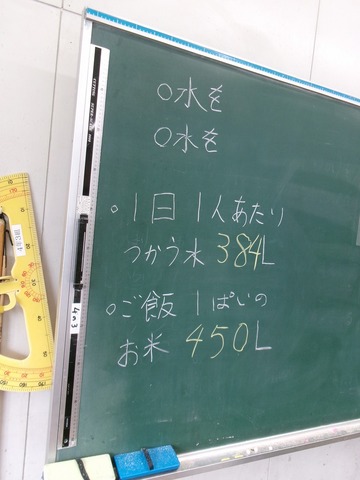 ○水を
○水を
○1日 1人あたり
つかう水 384L
○ご飯 1ぱいの
お米 450L
4の3